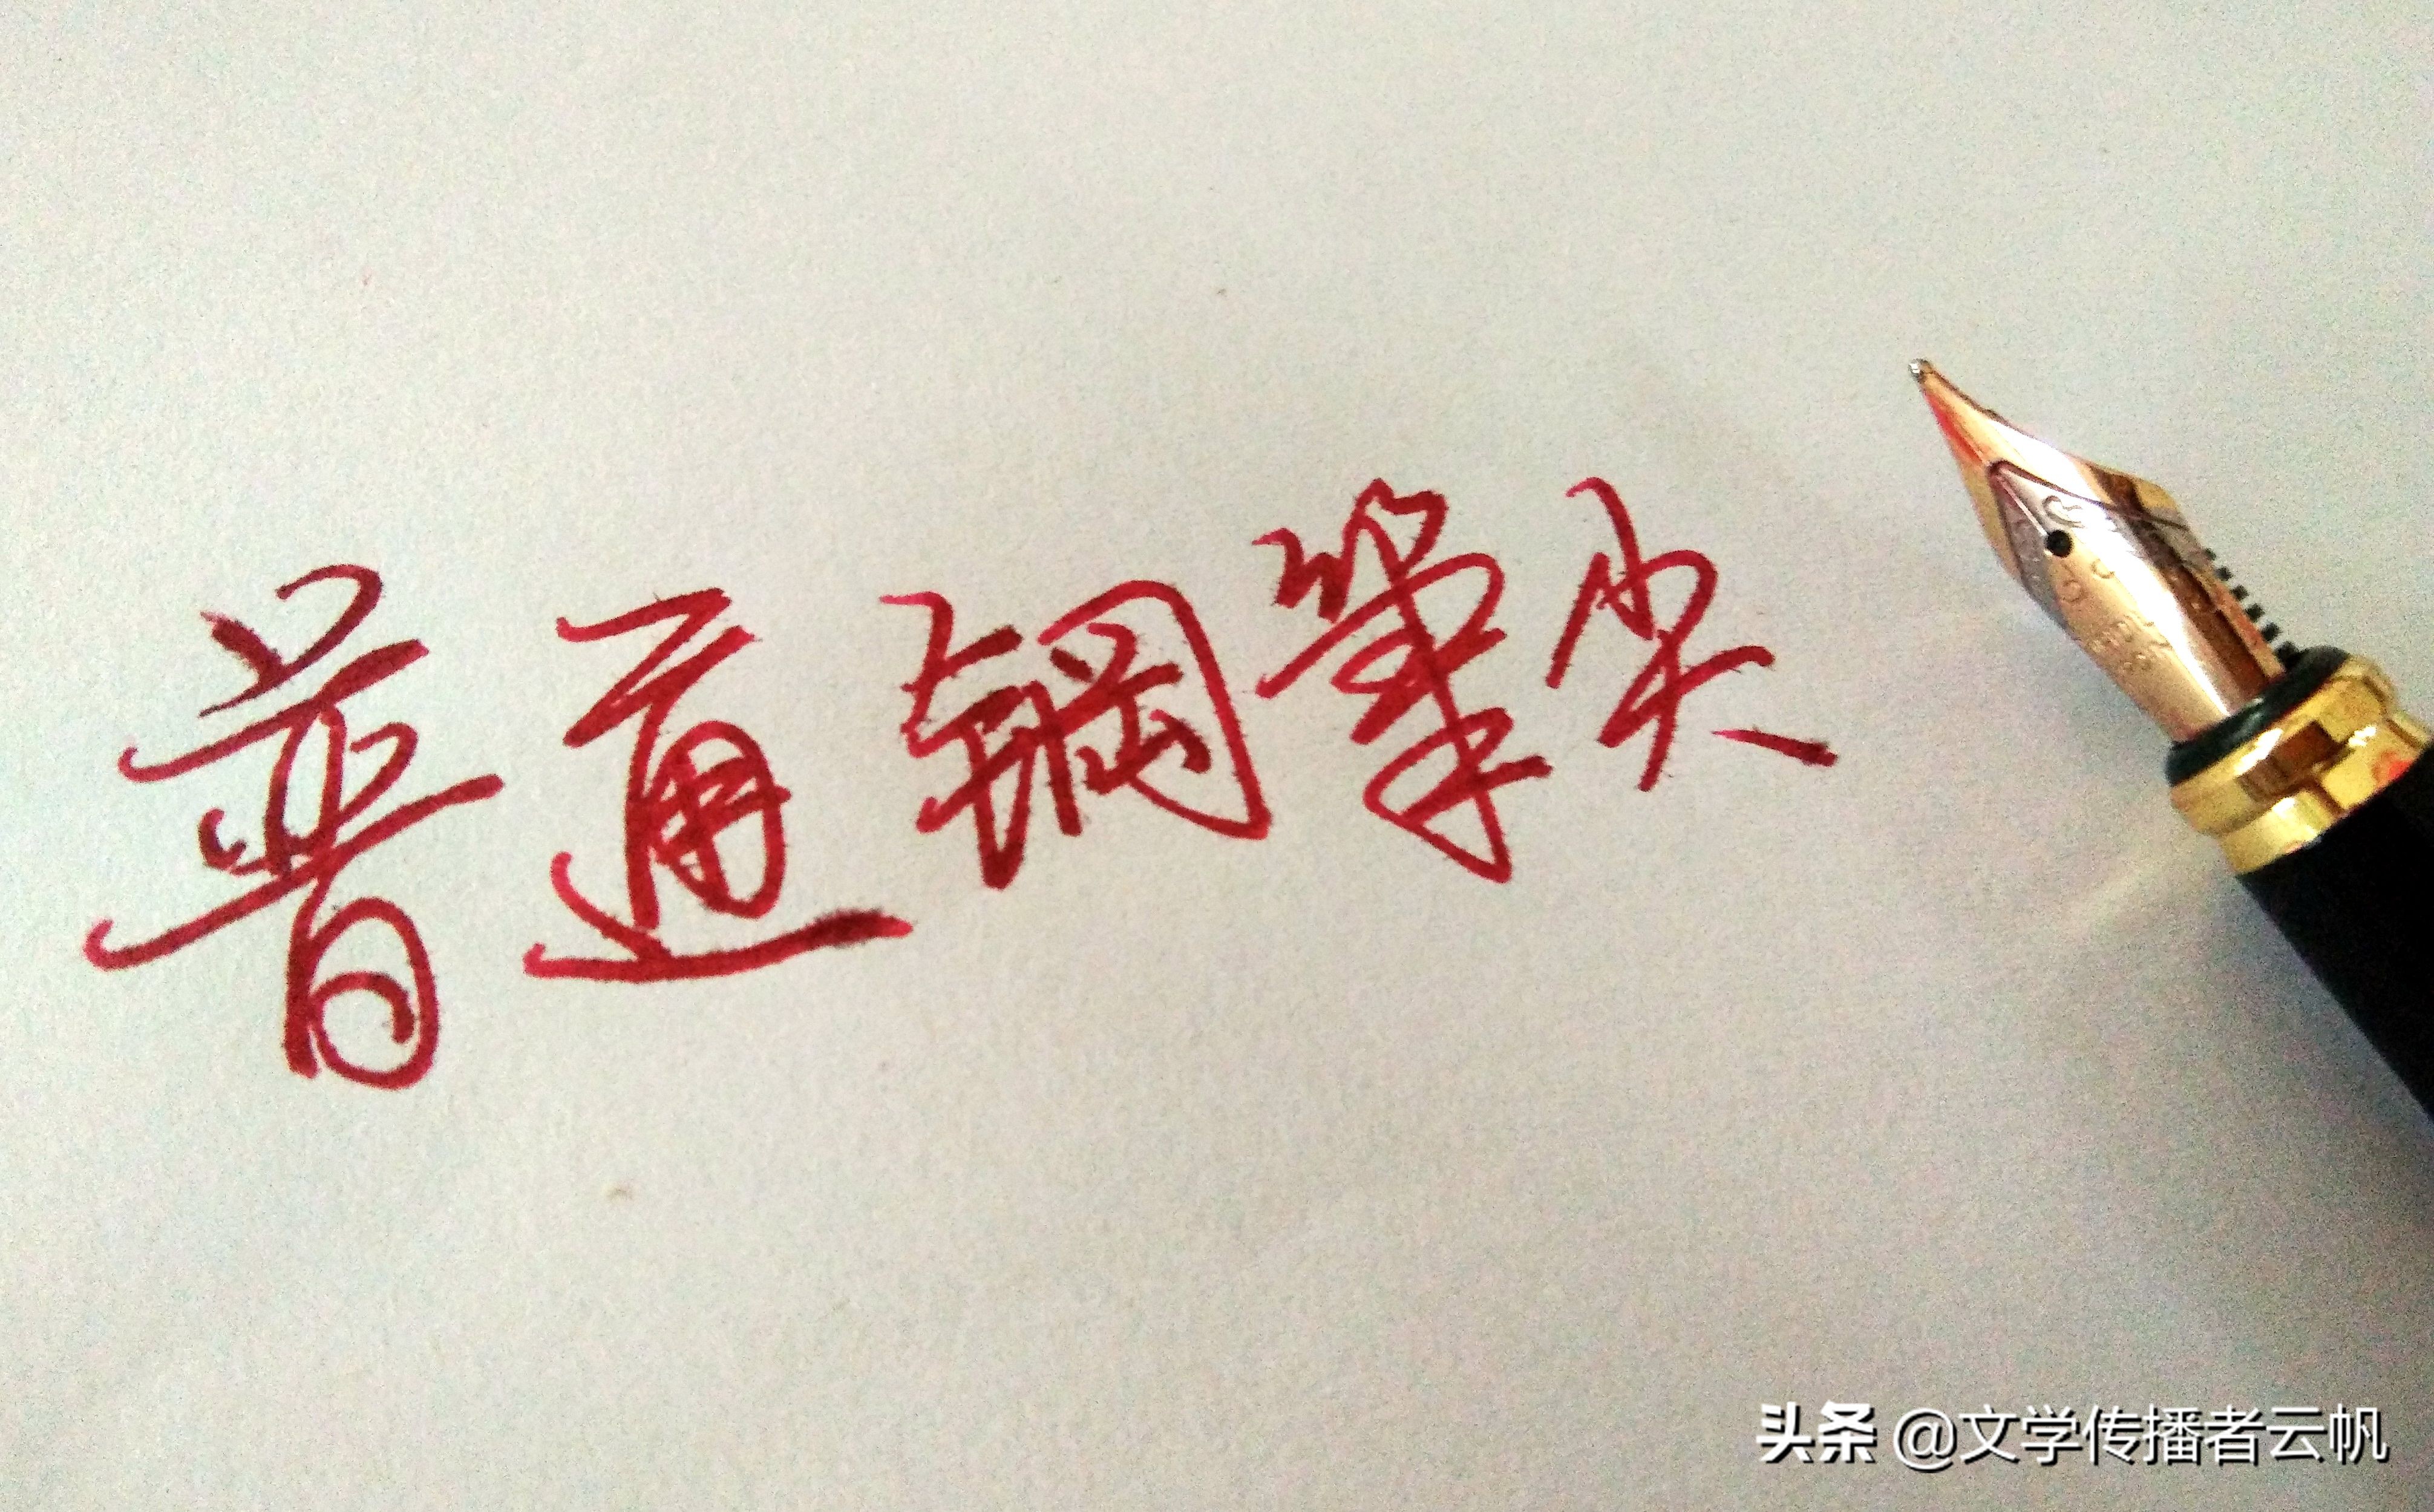 普通鋼筆尖
头条 @文学传播者云帆